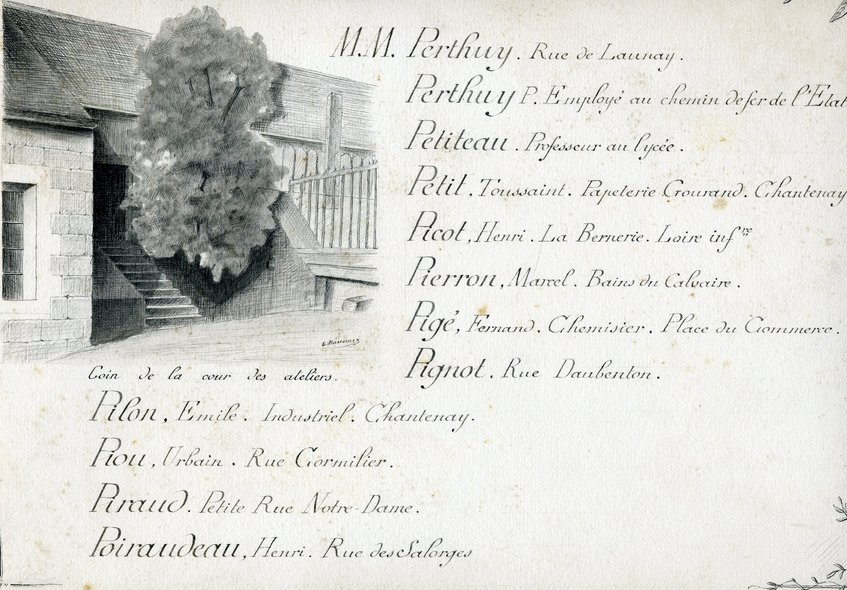 M.M. Perthuy. Rue de Launay.
Perthuy P. Employé au chemin de fer de l'Etat
Petiteau. Professeur au lycée.
Petit, Toussaint. Papeterie Gourand. Chantenay
Picot, Henri. La Bernerie. Loire infre
Pierron, Marcel. Bains du Calvaire.
Pigé, Fernand. Chemisier. Place du Commerce.
Pignot. Rue Daubenton.
Coin de la cour des ateliers.
Pilon, Emile. Industriel. Chantenay.
Piou, Urbain. Rue Cormilier.
Piraud. Petite Rue Notre-Dame.
Poiraudeau, Henri. Rue des Salorges